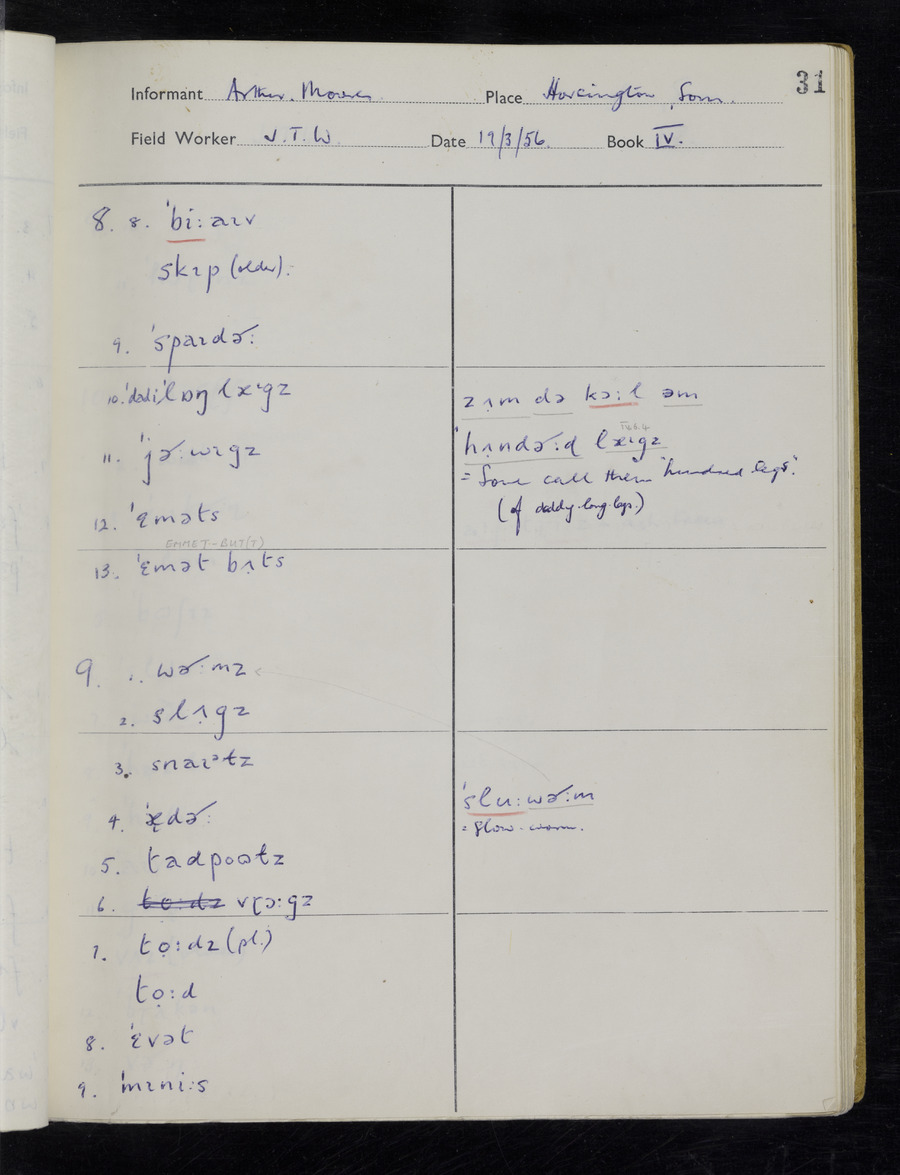 31
Informant Arthur Moores Place Horsington, Som.
Field Worker J.T.W. Date 19/3/56 Book IV.
8. 8. ˈbi:aɪv
skɪp (older).
9. ˈspaɪdɚ:
10. ˈdadiˈlɒŋ lɛ̞ˑgz
11. ˈjɚ:wɪgz
12. ˈɛ̞məts
EMMET-BUT(T)
13. ˈɛ̞mət bʌ̣ts
9. 1. wɚ:mz
2. slʌ̣gz
3. snaɪᵊɫz
4. ˈɛ̞dɚ:
5. tadpoʊɫz
6. to̞:dz vɽɔ:gz
7. to̞:dz (pl.)
to̞:d
8. ˈɛ̞vət
9. ˈmɪni:s
zʌ̣m də kɔ:l əm
ˈhʌ̣ndɚ:d læˑgz
= Some call them "hundred legs".
(of daddy-long-legs.)
ˈslu:wɚ:m
= slow-worm.